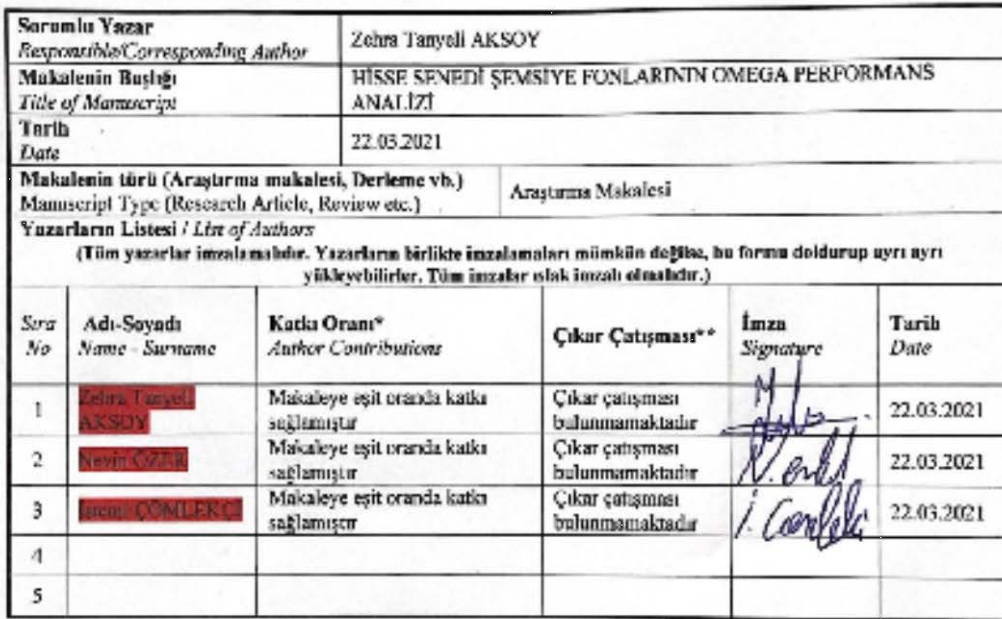 Sorumlu Yazar
Responsible/Corresponding Author
Zehra Tanyeli AKSOY
Makalenin Başlığı
Title of Manuscript
HİSSE SENEDİ ŞEMSİYE FONLARININ OMEGA PERFORMANS
ANALİZİ
Tarih
Date
22.03.2021
Makalenin türü (Araştırma makalesi, Derleme vb.)
Manuscript Type (Research Article, Review etc.)
Araştırma Makalesi
Yazarların Listesi / List of Authors
(Tüm yazarlar imzalamalıdır. Yazarların birlikte imzalamaları mümkün değilse, bu formu doldurup ayrı ayrı
yükleyebilirler. Tüm imzalar ıslak imzalı olmalıdır.)
Sıra
No
Adı-Soyadı
Name - Surname
Katkı Oranı*
Author Contributions
Çıkar Çatışması**
İmza
Signature
Tarih
Date
1
Zehra Tanyeli
AKSOY
Makaleye eşit oranda katkı
sağlamıştır
Çıkar çatışması
bulunmamaktadır
22.03.2021
2
Nevin ÖZER
Makaleye eşit oranda katkı
sağlamıştır
Çıkar çatışması
bulunmamaktadır
22.03.2021
3
İstemi ÇÖMLEKÇİ
Makaleye eşit oranda katkı
sağlamıştır
Çıkar çatışması
bulunmamaktadır
22.03.2021
4
5